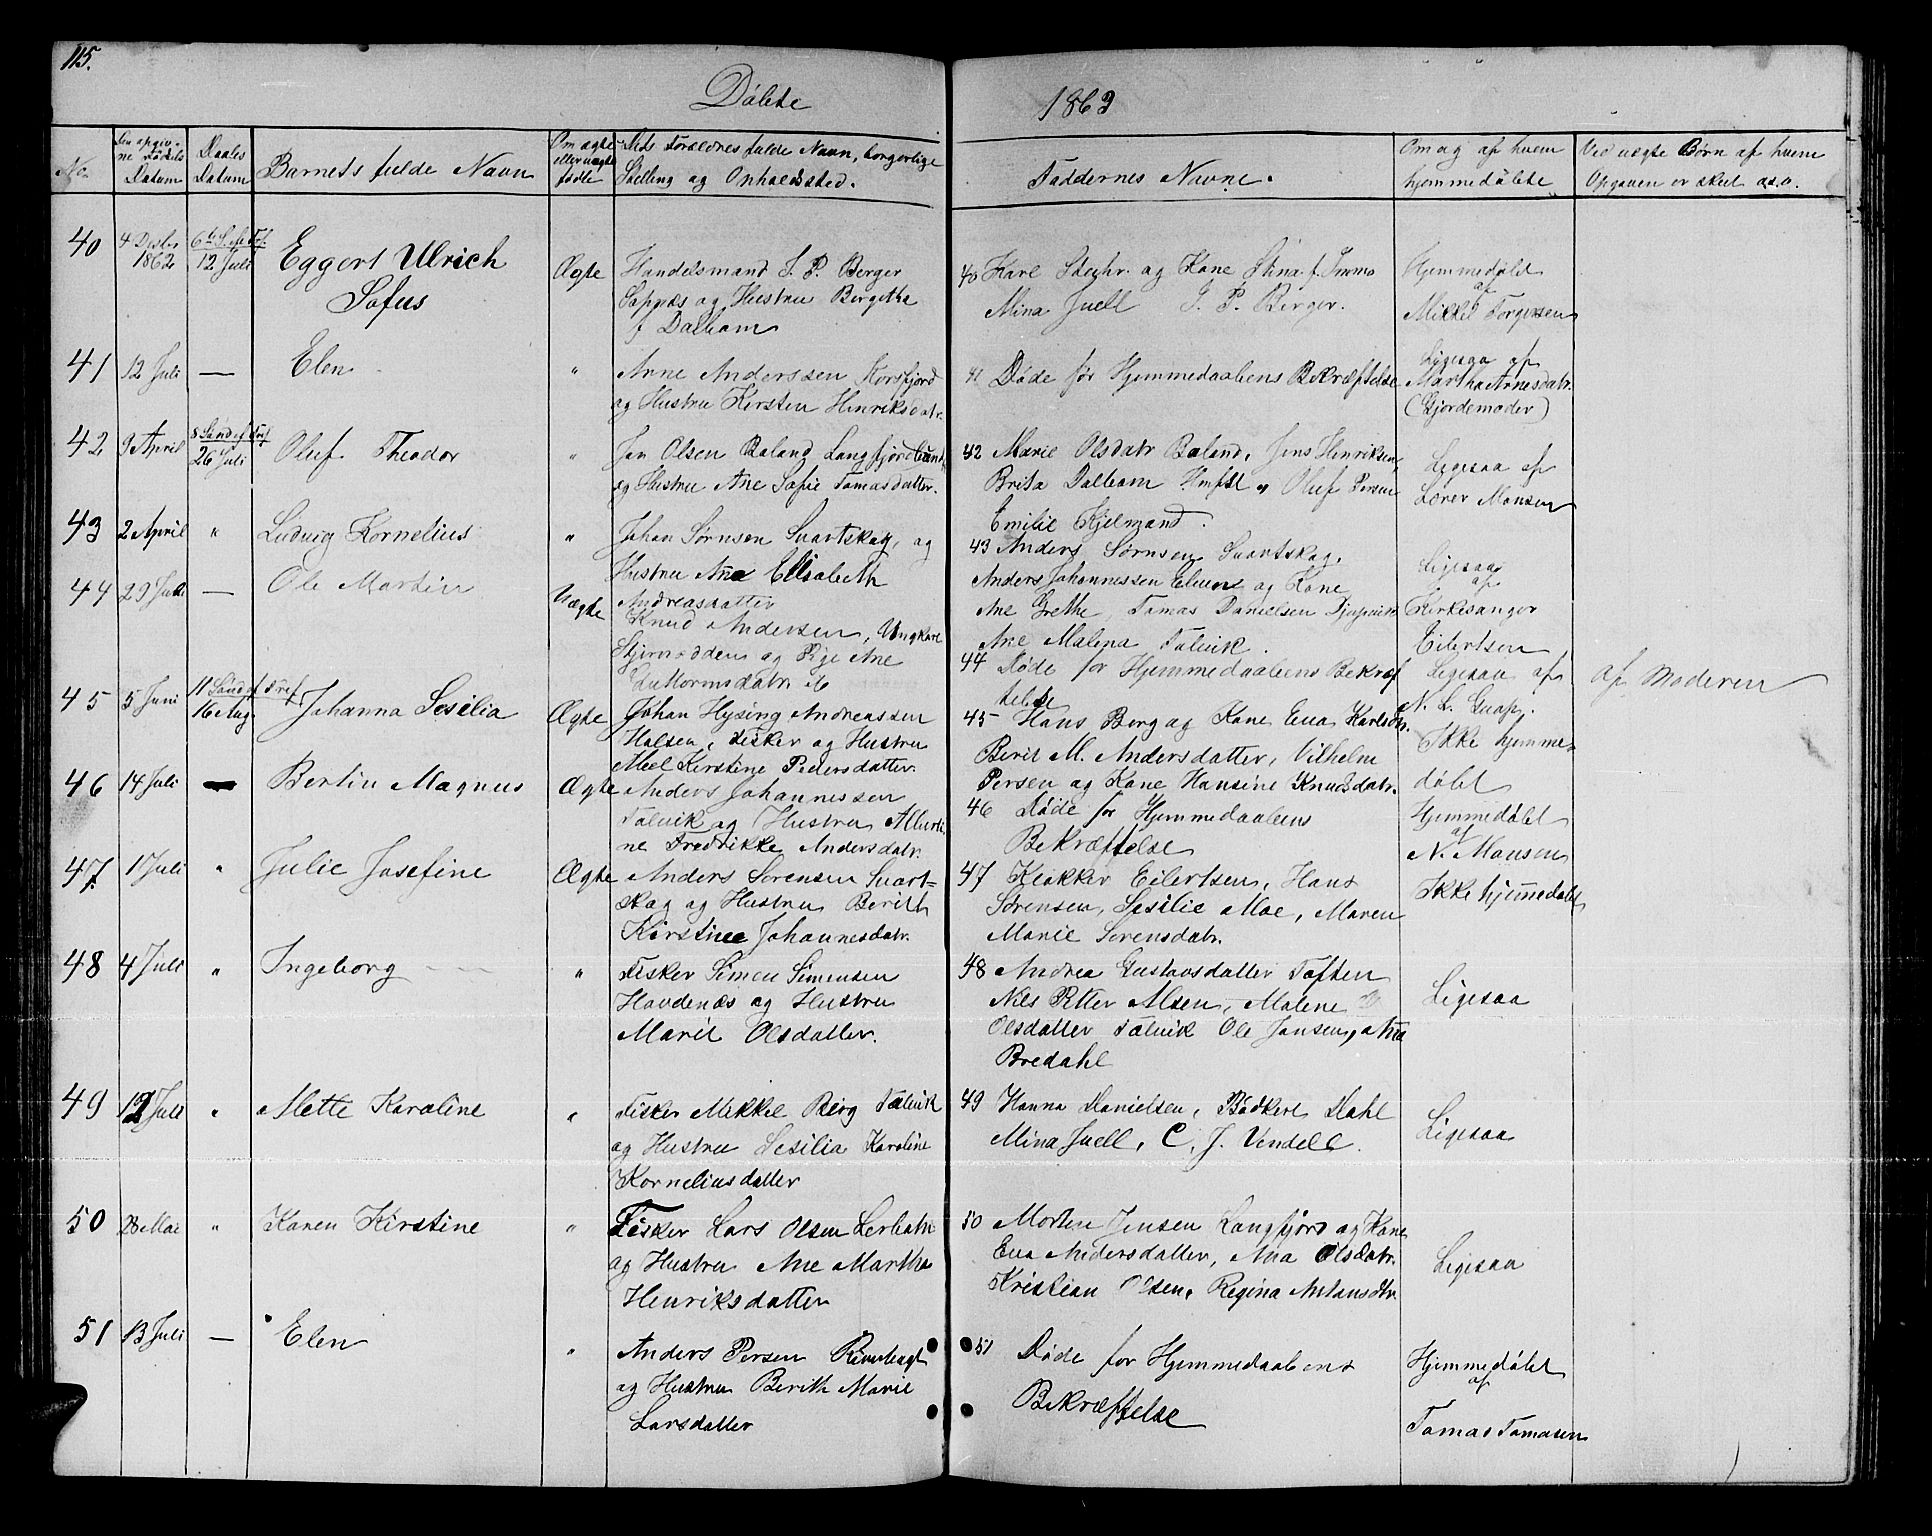 115.
Døbte
1863
No.
Den opgiv-
ne Fødsels
Datum
Daabs
Datum
Barnets fulde Navn
Om ægte
eller uægte
fødte
Dets Forældres fulde Navn, borgerlige
Stilling og Opholdssted.
Faddernes Navne.
Om og af hvem
hjemmedøbte
Ved uægte Børn af hvem
Opgaven er skeet o.s.v.
40
4 Desbr
1862
6te S. ef Tref.
12 Juli
Eggert Ulrich
Sofus
Ægte
Handelsmand J. P. Berger
og Hustru Bergitha
f Dalheim
40 Karl og Kone Stina f.
Mina Juell J. P. Berger.
Hjemmedøbt
af
Mikkel Torgersen
41
12 Juli
—
Elen
"
Arne Anderssen Korsfjord
og Hustru Kirsten Henriksdatr.
41 Døde før Hjemmedaabens Bekræftelse
Ligesaa af
Martha Arnesdatr.
(Gjordemoder)
42
9 April
8 Sønd ef Tref
26 Juli
Oluf Theodor
"
Jon Olsen Baland Langfjordbund
og Hustru Ane Sofie Tomasdatter.
42 Marie Olsdatr Baland, Jens Henriksen,
Brita Dalheim Oluf Persen
Emilie Kjelmand.
Ligesaa af
Lærer Monsen
43
2 April
"
Ludvig Kornelius
"
Johan Sørnsen Svartskog, og
Hustru Ane Elisabeth
Andreasdatter
43 Anders Sørnsen Svartskog,
Anders Johannessen og Kone
Ane Grethe, Tomas Danielsen
Ane Malena Talvik.
Ligesaa
af
Kirkesanger
Eilertsen
44
29 Juli
—
Ole Martin
Uægte
Knud Andersen, Ungkarl
og Pige Ane
44 Døde før Hjemmedaabens Bekræf
telse
Ligesaa af
N. L.
af Moderen
45
5 Juni
11 Sønd ef Tref.
16 Aug.
Johanna Sesilia
Ægte
Johan Hysing Andreassen
Halsen, Fisker og Hustru
Kirstine Pedersdatter.
45 Hans Berg og Kone Eva Karlsdtr.
Berit M. Andersdatter, Vilhelm
Persen og Kone Hansine Knudsdatr.
Ikke hjemme-
døbt
46
14 Juli
—
Bertin Magnus
Ægte
Anders Johannessen
Talvik og Hustru Alberti
ne Fredrikke Andersdatr.
46 Døde før Hjemmedaabens
Bekræftelse
Hjemmedøbt
af
N. Monsen
47.
1 Juli
"
Julie Josefine
Ægte
Anders Sørensen Svart=
skog og Hustru Berith
Kirstine Johannesdatr.
47 Klokker Eilertsen, Hans
Sørensen, Sesilie Moe, Maren
Marie Sørensdatr.
Ikke hjemmedøbt
48
4 Juli
"
Ingeborg
"
Fisker Simon Simensen
Havdenæs og Hustru
Marit Olsdatter.
48 Andrea Gustavsdatter Toften
Nils Petter Olsen, Malene
Olsdatter Talvik Ole Jansen, Ana
Bredahl
Ligesaa
49
12 Juli
"
Mette Karoline
"
Fisker Mikkel Berg Talvik
og Hustru Sesilia Karoline
Korneliusdatter
49 Hanna Danielsen, Bødker Dahl
Mina Juell, C. J. Vendell.
Ligesaa
50
28 Mai
"
Karen Kirstine
"
Fisker Lars Olsen
og Hustru Ane Martha
Henriksdatter
50 Morten Jensen Langfjord og Kone
Eva Andersdatter, Ana Olsdatr.
Kristian Olsen, Regina Antonsdtr.
Ligesaa
51
13 Juli
—
Elen
"
Anders Persen
og Hustru Berith Marie
Larsdatter
51 Døde før Hjemmedaabens
Bekræftelse
Hjemmedøbt
af
Tomas Tomasen